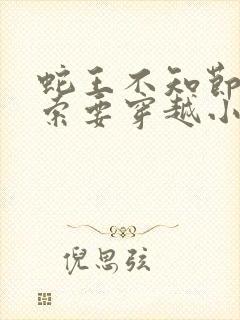 蛇王不知节
索要穿越小
倪思弦